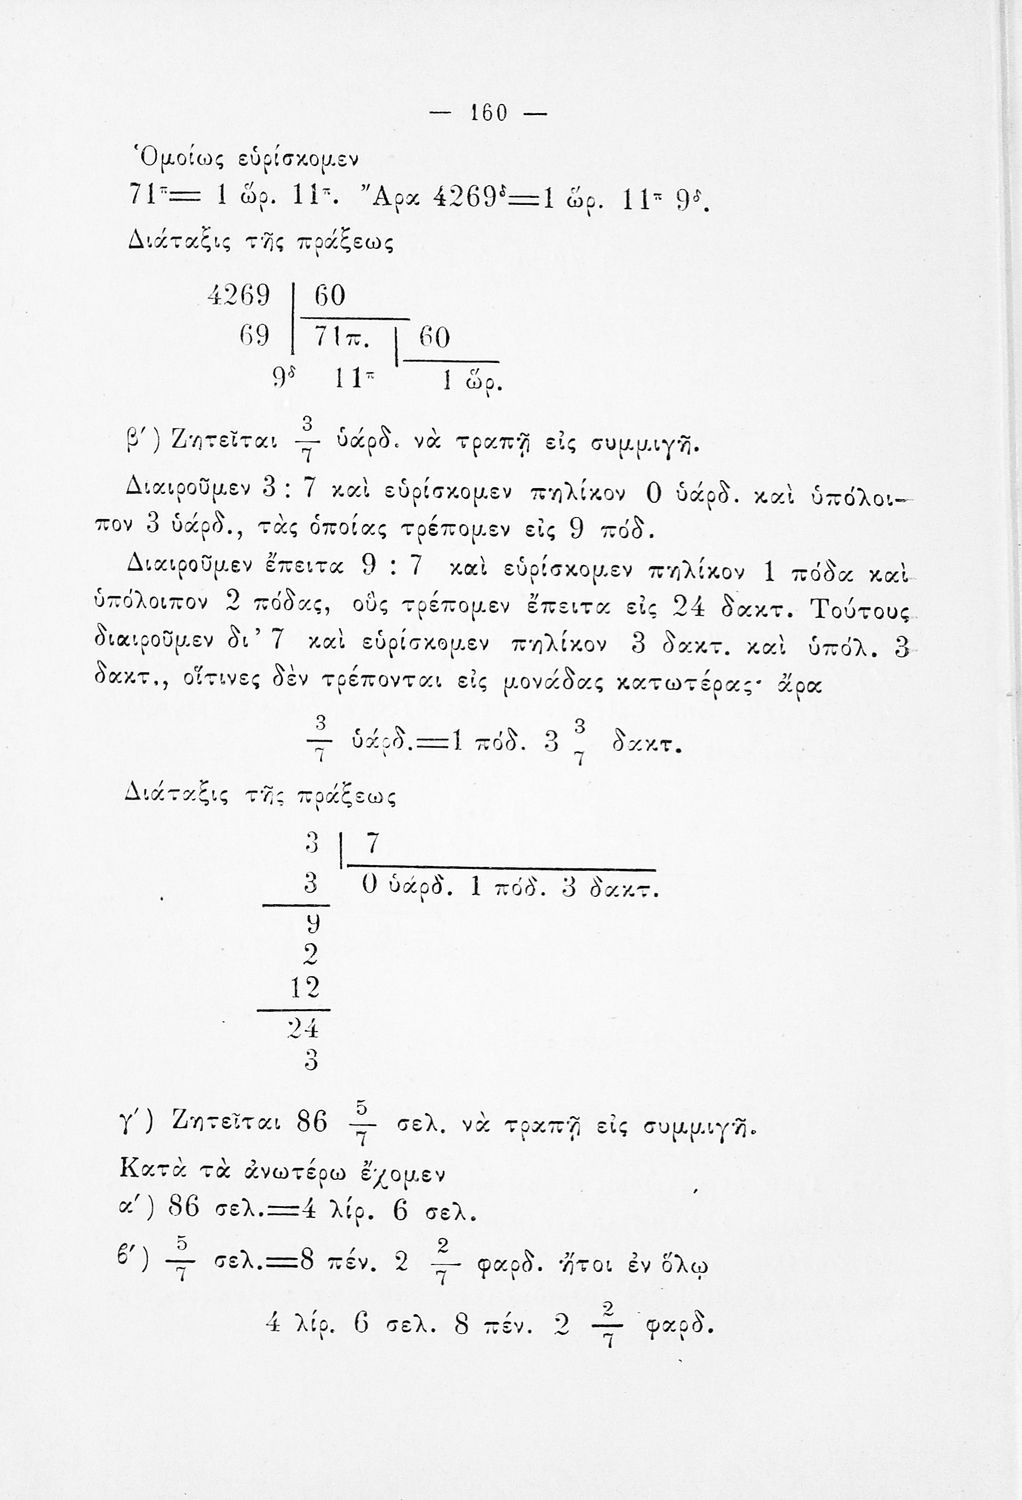 — 160 —
Ὁμοίως εὑρίσκομεν
71π= 1 ὥρ. 11π. Ἄρα 4269δ=1 ὥρ. 11π 9δ.
Διάταξις τῆς πράξεως
4269 | 60
69 | 71π. | 60
9δ 11π 1 ὥρ.
β') Ζητεῖται 3/7 ὑάρδ. νὰ τραπῇ εἰς συμμιγῆ.
Διαιροῦμεν 3 : 7 καὶ εὑρίσκομεν πηλίκον 0 ὑάρδ. καὶ ὑπόλοι-
πον 3 ὑάρδ., τὰς ὁποίας τρέπομεν εἰς 9 πόδ.
Διαιροῦμεν ἔπειτα 9 : 7 καὶ εὑρίσκομεν πηλίκον 1 πόδα καὶ
ὑπόλοιπον 2 πόδας, οὓς τρέπομεν ἔπειτα εἰς 24 δακτ. Τούτους
διαιροῦμεν δι' 7 καὶ εὑρίσκομεν πηλίκον 3 δακτ. καὶ ὑπόλ. 3
δακτ., οἵτινες δὲν τρέπονται εἰς μονάδας κατωτέρας· ἄρα
3/7 ὑάρδ.=1 πόδ. 3 3/7 δακτ.
Διάταξις τῆς πράξεως
3 | 7
3 0 ὑάρδ. 1 πόδ. 3 δακτ.
9
2
12
24
3
γ') Ζητεῖται 86 5/7 σελ. νὰ τραπῇ εἰς συμμιγῆ.
Κατὰ τὰ ἀνωτέρω ἔχομεν
α') 86 σελ.=4 λίρ. 6 σελ.
ϐ') 5/7 σελ.=8 πέν. 2 2/7 φαρδ. ἤτοι ἐν ὅλῳ
4 λίρ. 6 σελ. 8 πέν. 2 2/7 φαρδ.